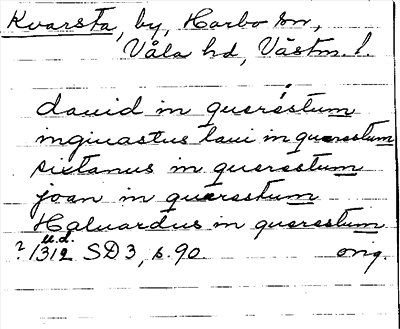 Kvarsta, by, Harbo sn,
Våla hd, Västm. l.
dauid in querestum
ingiuastus laui in querestum
sixtanus in querestum
joan in querestum
Haluardus in querestum
u.d.
? 1312 SD3, s. 90. orig.